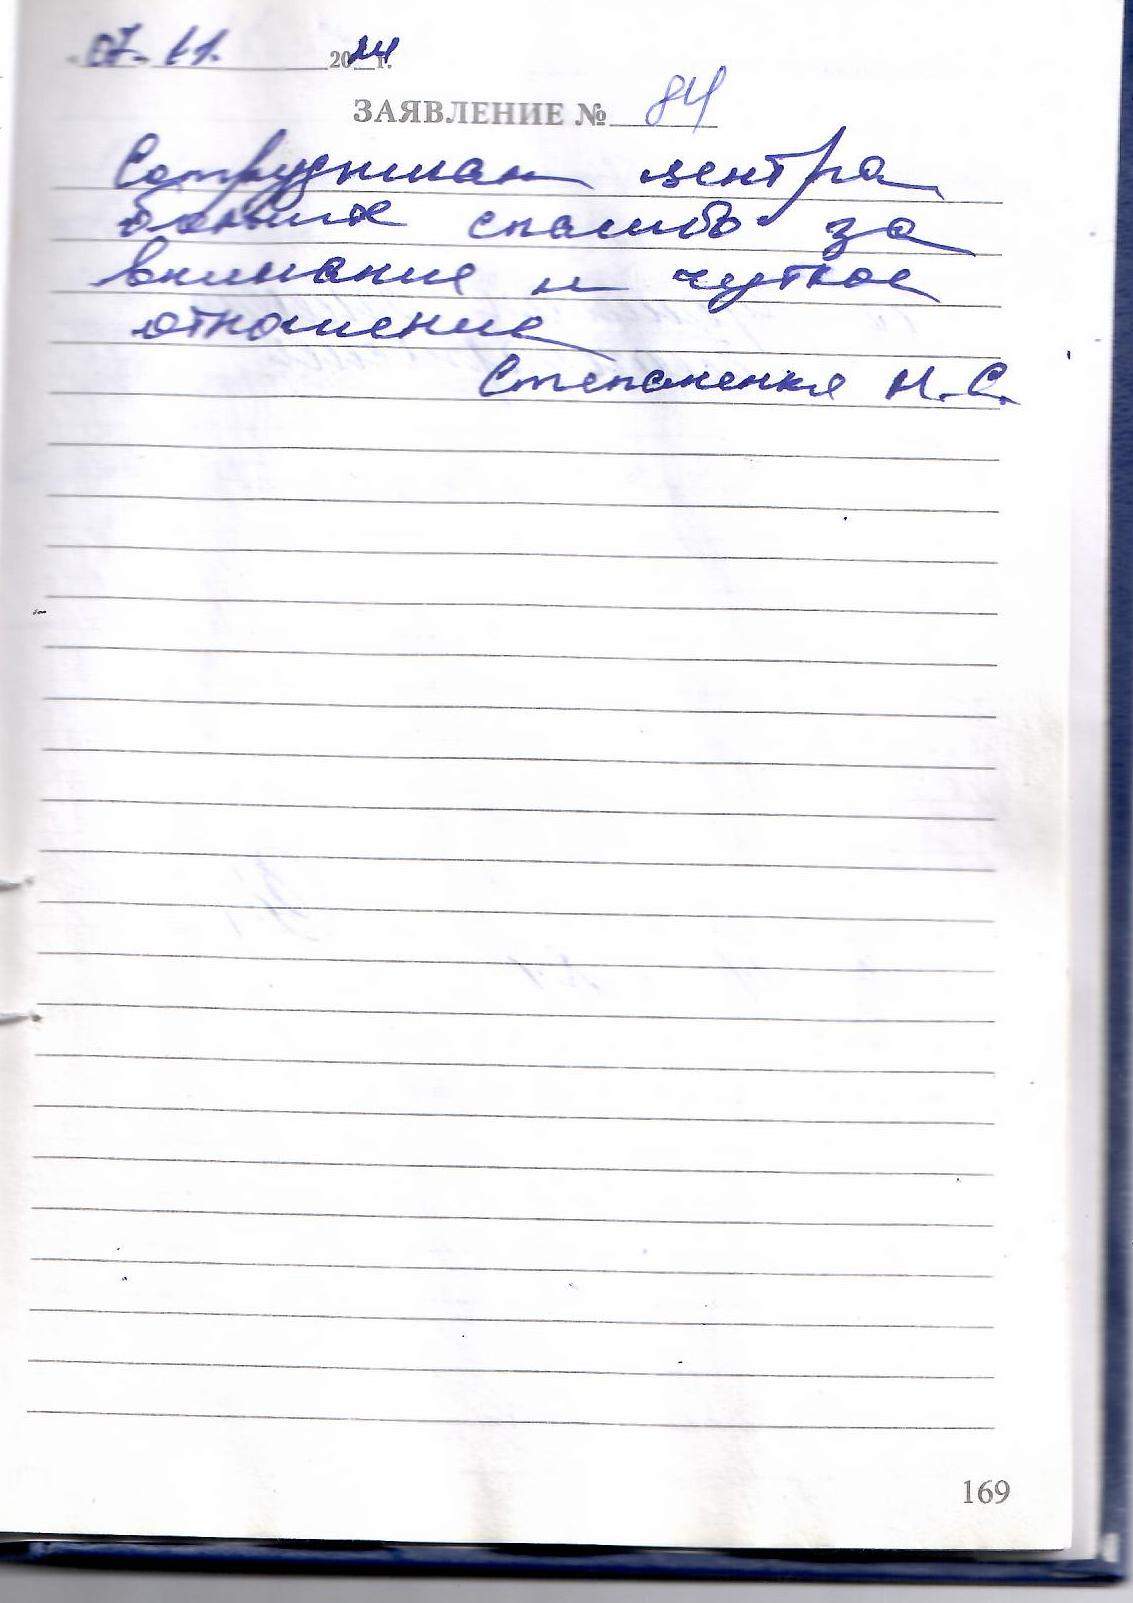 07. 11. 2024 г.
ЗАЯВЛЕНИЕ № 84
Сотрудникам центра
большое спасибо за
внимание и чуткое
отношение
Степаненко Н.С.
169